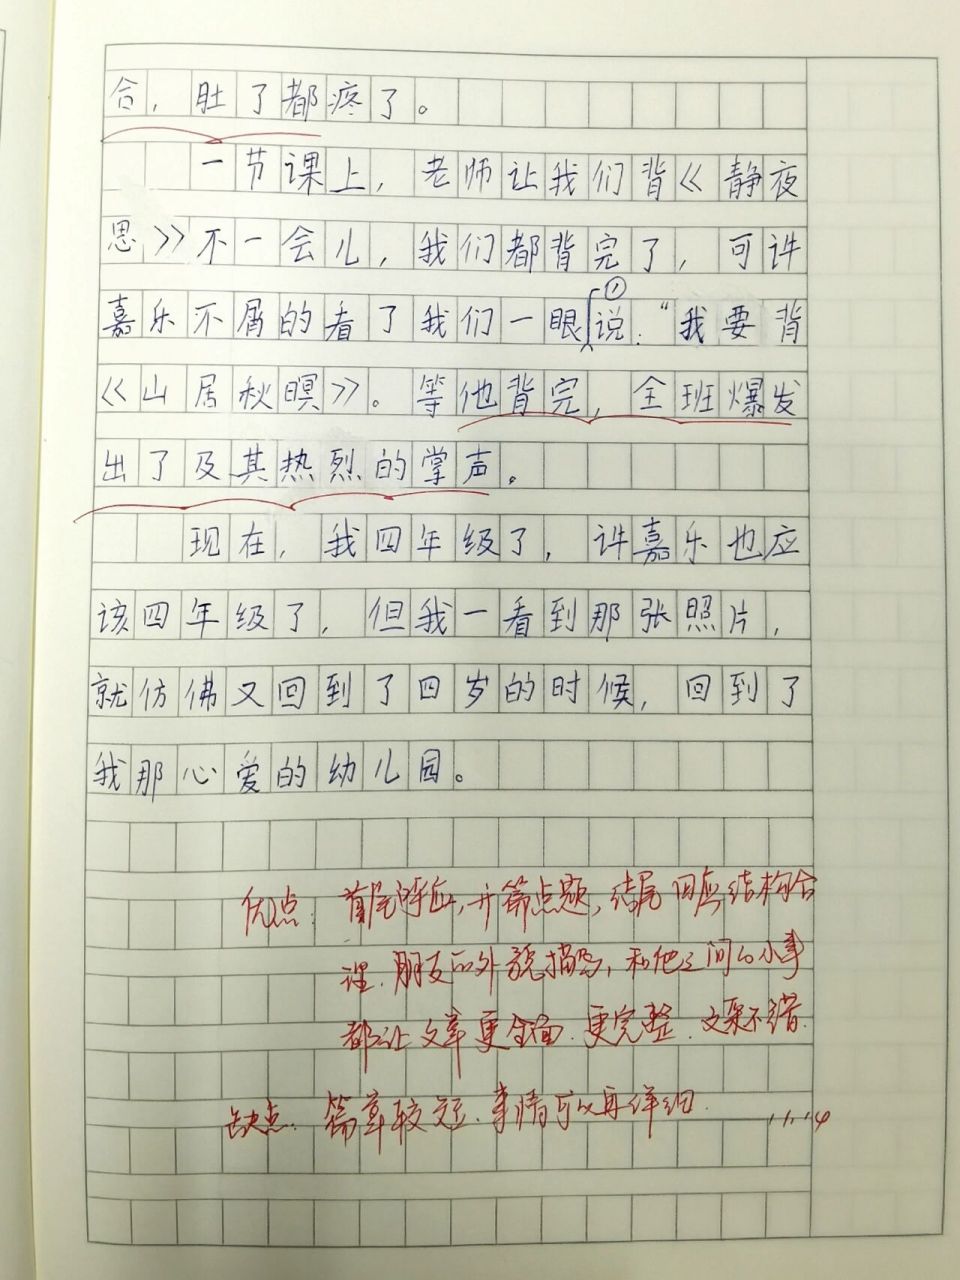 合，肚了都疼了。
一节课上，老师让我们背《静夜
思》不一会儿，我们都背完了，可许
①
嘉乐不屑的看了我们一眼说："我要背
《山居秋暝》。等他背完，全班爆发
出了及其热烈的掌声。
现在，我四年级了，许嘉乐也应
该四年级了，但我一看到那张照片，
就仿佛又回到了四岁的时候，回到了
我那心爱的幼儿园。
优点：首尾呼应，开篇点题，结尾回应结构合
理.朋友的外貌描写，和他之间的小事
都让文章更全面.更完整.文采不错.
缺点：篇章较短.事情可以再详细.